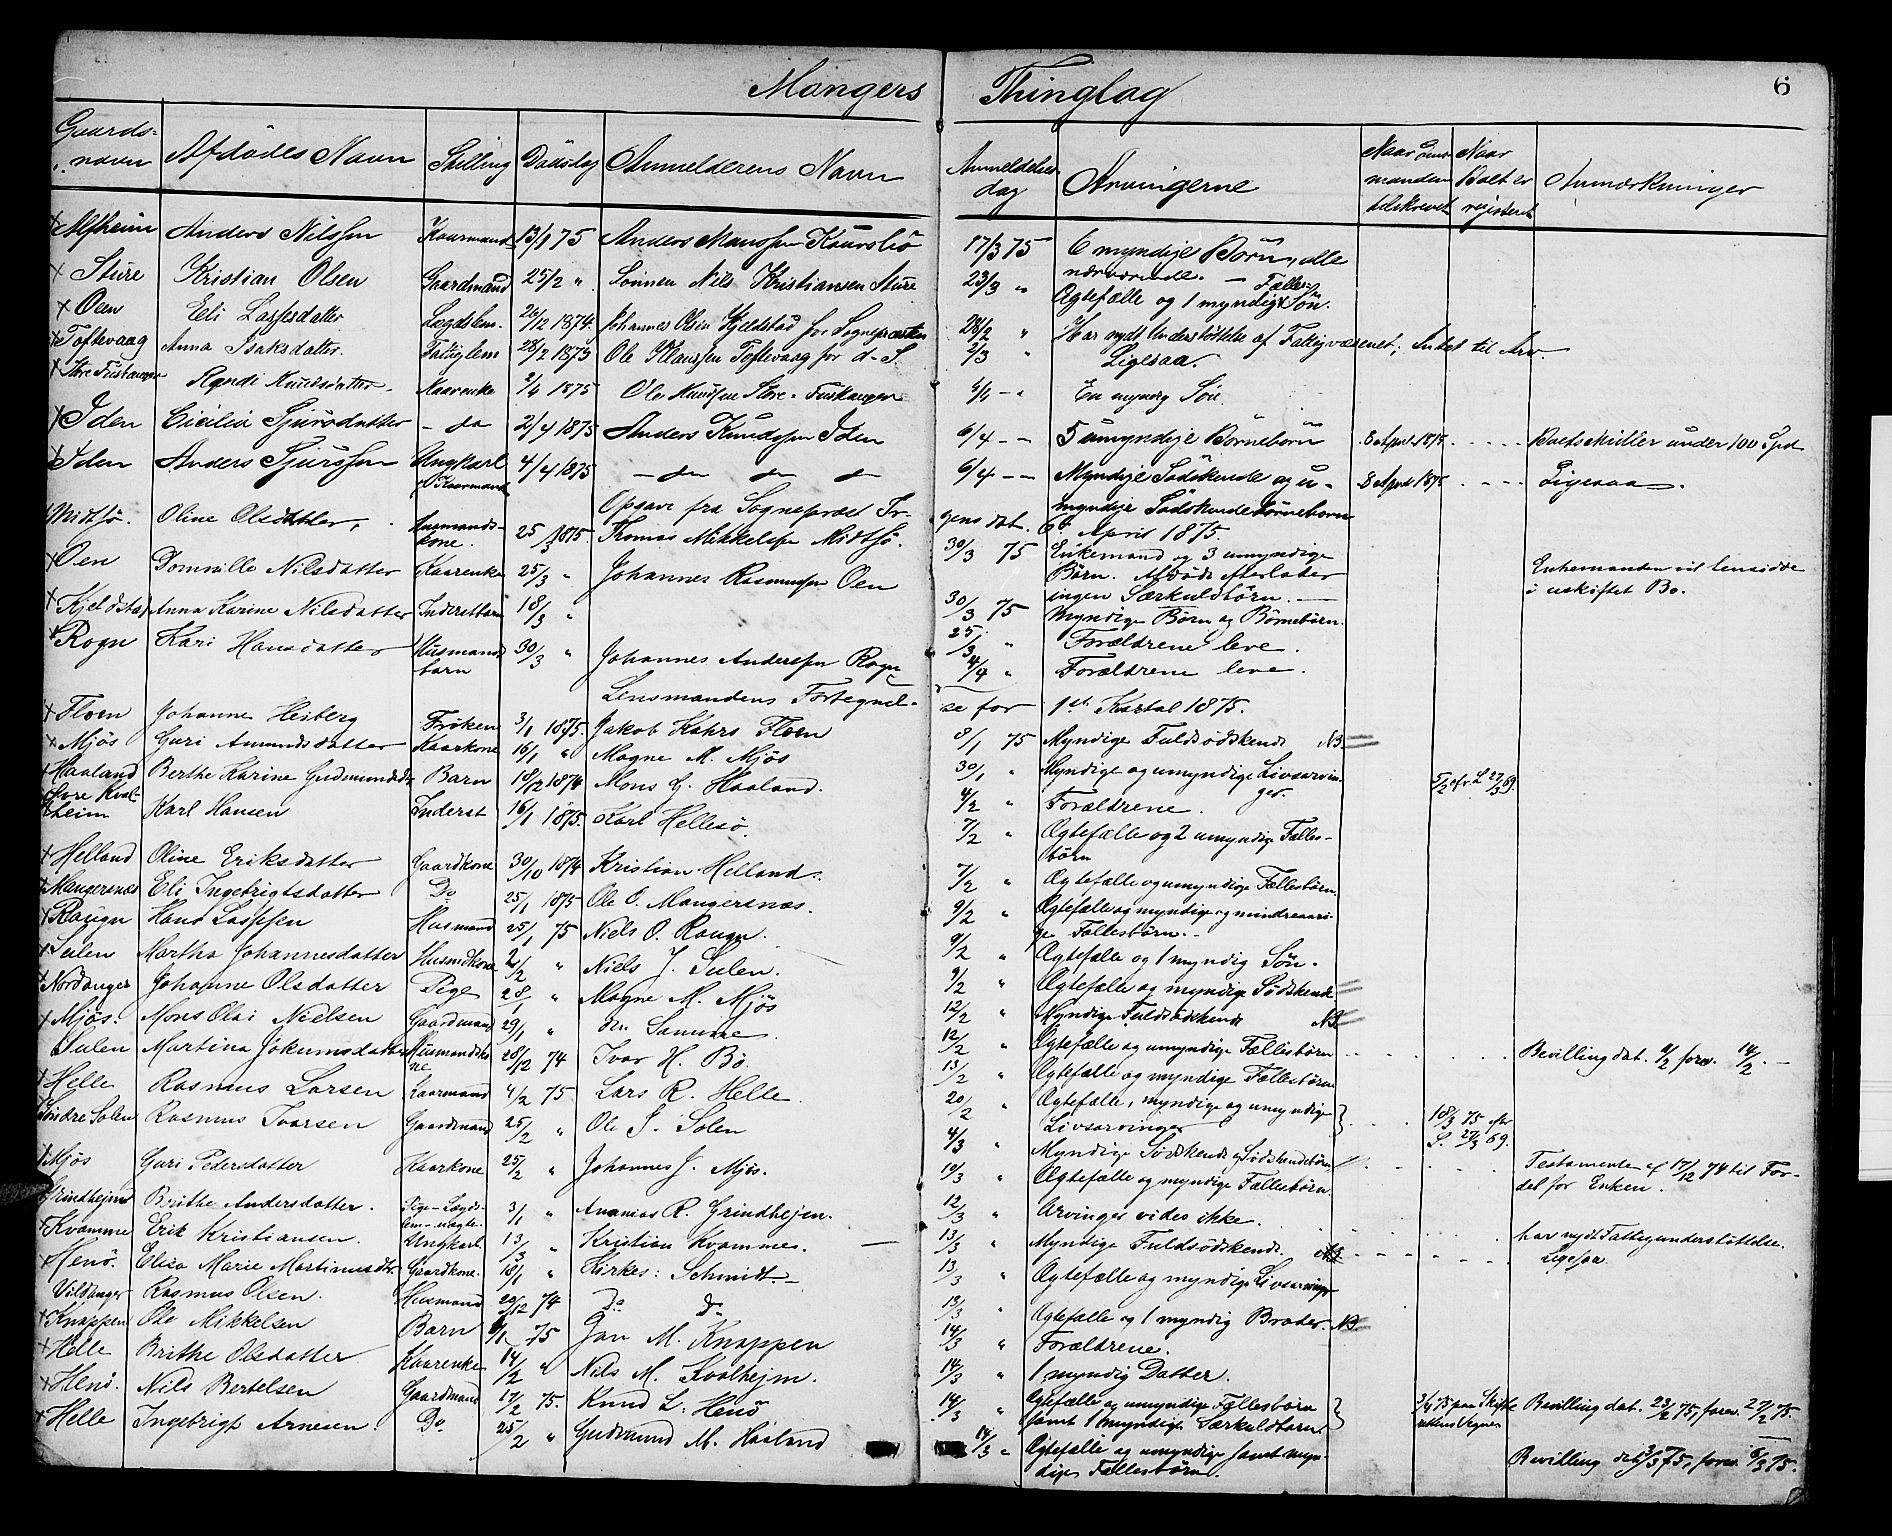 Mangers Thinglag 6
Gaards-navn Afdødes Navn Stilling Dødsdag Anmelderens Navn Anmeldelses dag Arvingerne Naar Lensmanden tilskrevet Naar Boet er registeret Anmærkninger
Alfheim Anders Nilssen Kaarmand 13/1 75 Anders Monssen 17/3 75 6 myndige Børn, alle nærværende.
Sture Kristian Olsen Gaardmand 25/2 " Sønnen Nils Kristiansen Sture 23/3 " Ægtefælle og 1 myndig Fælles Søn.
Oen Eli Lassesdatter Lægdslem 26/12 1874 Johannes Olsen Kjeldstad for Sognepræsten 28/2 " Har nydt Understøttelse af Fattigvæsenet; Intet til Arv.
Toftevaag Anna Isaksdatter Fattiglem 28/2 1873 Ole Klaussen Toftevaag for d. S. 2/3 " Ligesaa.
Røndi Knudsdatter Kaarenke 2/4 1875 Ole Knudsen Støre-Fuskanger 5/4 - " En myndig Søn
Iden Cicilia Sjursdatter - do 2/4 1875 Anders Knudssen Iden 6/4 - - 5 umyndige Børnebørn 8 April 1875 - - - - Boet skiller under 100 Spd
Iden Anders Sjurssen Ungkarl Kaarmand 4/4 1875 - do do do 6/4 - - Myndige Södskende og umyndige Södskendebørnebørn 8 April 1875 - - - - Ligesaa.
Opgave fra Sognepræst Irgens dat. 6te April 1875.
Midtsö. Oline Olsdatter, kone. 25/3 1875 Thomas Mikkelsen Midtsö. 30/3 75 Enkemand og 3 umyndige Børn. Afdøde efterlater ingen Særkuldbørn. Enkemanden vil hensidde i uskiftet Bo.
Oen Domnille Nilsdatter Kaarenke 25/3 " Johannes Rasmussen Oen 30/3 75 Myndige Børn og Børnebørn.
Kjeldstad Anna Karine Nilsdatter Inderstbarn 18/3 " 25/3 " Forældrene leve.
Rogn Kari Hansdatter Husmands barn 30/3 " Johannes Andersen Rogn 4/4 " Forældrene leve.
Lensmandens Fortegnelse for 1ste Kvartal 1875.
Floen Johanne Heiberg Frøken 3/1 1875. Jakob Kahrs Floen 8/1 75 Myndige Fuldsødskende NB
Mjös Guri Amundsdatter Kaarkone 16/1 " Mogne M. Mjös 30/1 " Myndige og umyndige Livsarvinger. 5/2 efr. L 27/3 69.
Haaland Berthe Karine Gudmundsdtr Barn 18/12 1874 Mons G. Haaland. 4/2 " Forældrene.
Øvre Kvalheim Karl Hansen Inderst 16/1 1875. Karl Hellesö. 7/2 " Ægtefælle og 2 umyndige Fællesbörn
Helland Oline Eriksdatter Gaardkone 30/10 1874 Kristian Helland. 7/2 " Ægtefælle og umyndige Fællesbörn.
Mangersnæs Eli Ingebrigtsdatter Do 25/1 1875 Ole O. Mangersnæs. 9/2 " Ægtefælle og myndige og mindreaarige Fællesbörn.
Rougn Hans Lassesen Husmand 25/1 75 Niels O. Rougn. 9/2 " Ægtefælle og 1 myndig Sön.
Sulen Martha Johannesdatter Husmdkone 2/2 " Niels J. Sulen. 9/2 " Ægtefælle og myndige Södskende.
Nordanger Johanne Olsdatter Pige 28/1 " Mogne M. Mjös 12/2 " Myndige Fuldsødskende NB
Mjös. Mons Olai Nielsen Gaardmand 29/1 " den Samme 12/2 " Ægtefælle og umyndige Fællesbörn Bevilling dat. 9/2 forev. 14/2.
Sulen Martina Jokumsdatter Husmandskone 28/12 74 Ivar H. Bö. 13/2 " Ægtefælle og myndige Fællesbörn
Helle Rasmus Larsen Kaarmand 4/2 75 Lars R. Helle. 20/2 " Ægtefælle, myndige og umyndige Livsarvinger 18/3 75 efr L. 27/3 69.
Søndre Solen Rasmus Ivarsen Gaardmand 25/2 " Ole S. Solen 4/3 " Myndige Södskende og Södskendebörn
Mjös Guri Pedersdatter Kaarkone 25/2 " Johannes J. Mjös. 10/3 " Ægtefælle og myndige Fællesbörn. Testamente af 17/12 74 til Fordel for Enken.
Grindhejm Brithe Andersdatter. Pige-Lægdslem 3/1 " Ananias R. Grindhejm. 12/3 " Arvinger vides ikke. har nydt Fattigunderstøttelse.
Kvamme Erik Kristiansen. Ungkarl 13/3 " Kristian Kvammes. 13/3 " Myndige Fuldsødskende. NB Ligesaa
Henö. Elisa Marie Martinusdtr. Gaardkone. 18/1 " Kirkes: Schmidt 13/3 " Ægtefælle og myndige Livsarvinger
Vildanger Rasmus Olsen. Husmand 20/12 74 Do d. 13/3 " Ægtefælle og 1 myndig Broder. NB.
Knappen Ole Mikkelsen Barn 75 Jan M. Knappen 14/3 " Forældrene.
Helle Brithe Olsdatter Kaarenke 14/2 " Nils M. Kvalhejm. 14/3 " 1 myndig Datter.
Henö. Nils Bertelsen Gaardmand 17/2 75. Knud L. Henö 14/3 " Ægtefælle og umyndige Fællesbörn samt 1 myndigt Særkuldbarn. 3/4 75 paa Skifterettens Vegne Bevilling dat. 23/2 75, forev. 27/2 75.
Helle Ingebrigt Arnesen. Do. 25/2 " Gudmund M. Haaland 14/3 " Ægtefælle og umyndige samt myndige Fællesbörn. Bevilling dat 3/3 75, forev. 6/3 75.